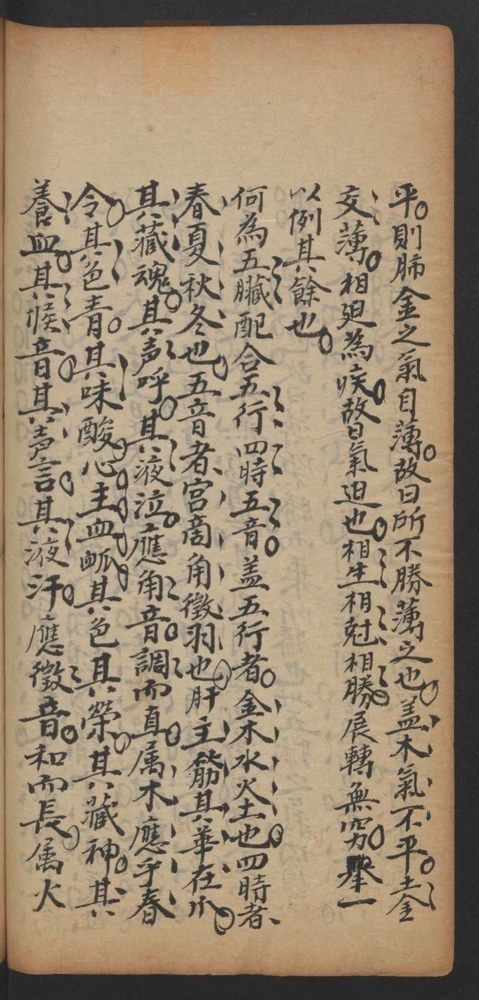 平則肺金之氣自薄故曰所不勝薄之也蓋木氣不平土金
交薄相迫為疾故曰氣迫也相生相尅相勝展轉無窮舉一
以例其餘也
何為五臟配合五行四時五音盖五行者金木水火土也四時者
春夏秋冬也五音者宮商角徵羽也肝主筋其華在爪
其藏魂其声呼其液泣應角音調而直属木應乎春
令其色青其味酸心主血脈其色其榮其藏神其
養血其候音其声言其液汗應徵音和而長属火